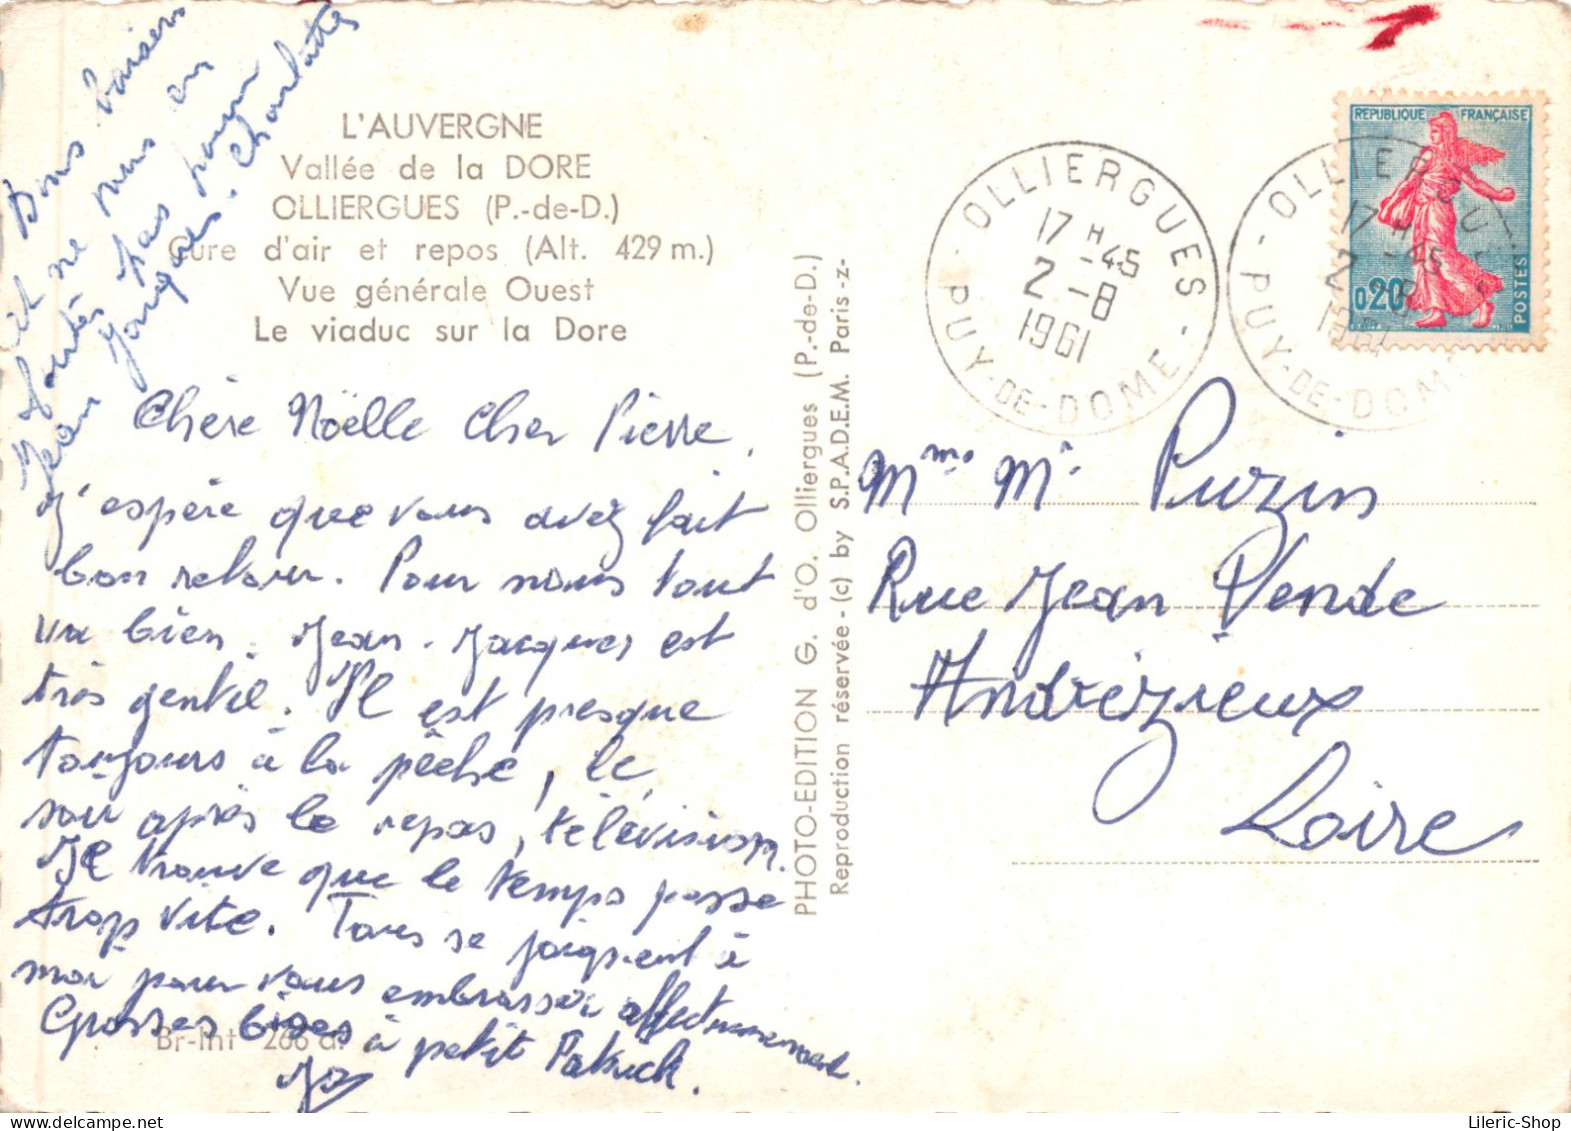 Bons baisers
et ne nous en
pas pour
Jean Jacques. Charlotte
L'AUVERGNE
Vallée de la DORE
OLLIERGUES (P.-de-D.)
Cure d'air et repos (Alt. 429 m.)
Vue générale Ouest
Le viaduc sur la Dore
Chère Nöelle Cher Pierre,
J'espère que vous avez fait
bon retour. Pour nous tout
va bien. Jean-Jacques est
très gentil. Il est presque
toujours à la pêche, le
soir après le repas, télévision.
Il trouve que le temps passe
trop vite. Tous se joignent à
moi pour vous embrasser affectueusement.
Grosses bises à petit Patrick.
Jo
Br-Int 266 d.
PHOTO-EDITION G. d'O. Olliergues (P.-de-D.)
Reproduction réservée - (c) by S.P.A.D.E.M. Paris -z-
OLLIERGUES
17 H -45
2 -8
1961
PUY-DE-DOME
OLLIERGUES
17 H -45
2 -8
1961
PUY-DE-DOME
REPUBLIQUE FRANÇAISE
0,20
POSTES
Mme Mr Puzin
Rue Jean Vende
Andrézieux
Loire
Lileric-Shop